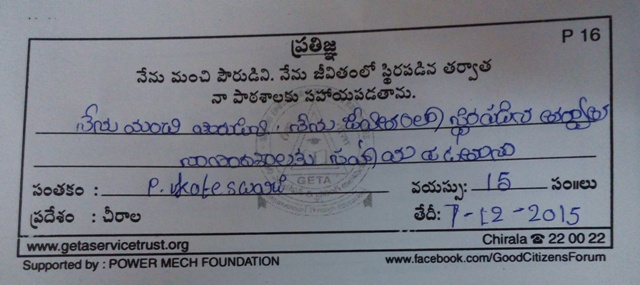 P 16
ప్రతిజ్ఞ
నేను మంచి పౌరుడిని. నేను జీవితంలో స్థిరపడిన తర్వాత
నా పాఠశాలకు సహాయపడతాను.
నేను మంచి పౌరుడిని. నేను జీవితంలో స్థిరపడిన తర్వాత
నా పాఠశాలకు సహాయ పడతాను
GETA
సంతకం : P. vkoteswari వయస్సు: 15 సం॥లు
ప్రదేశం : చీరాల తేదీ: 7-12-2015
www.getaservicetrust.org Chirala ☎ 22 00 22
Supported by : POWER MECH FOUNDATION www.facebook.com/GoodCitizensForum